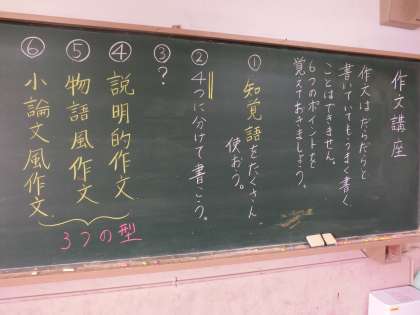 作文講座
作文はだらだらと
書いていてもうまく書く
ことはできません。
6つのポイントを
覚えておきましょう。
① 知覚語をたくさん
使おう。
② 4つに分けて書こう。
③ ?
④ 説明的作文
⑤ 物語風作文
⑥ 小論文風作文
3つの型